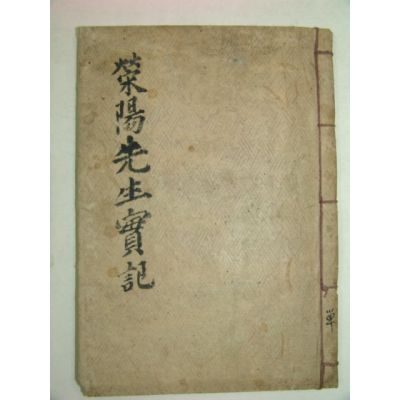 榮陽先生實記
單